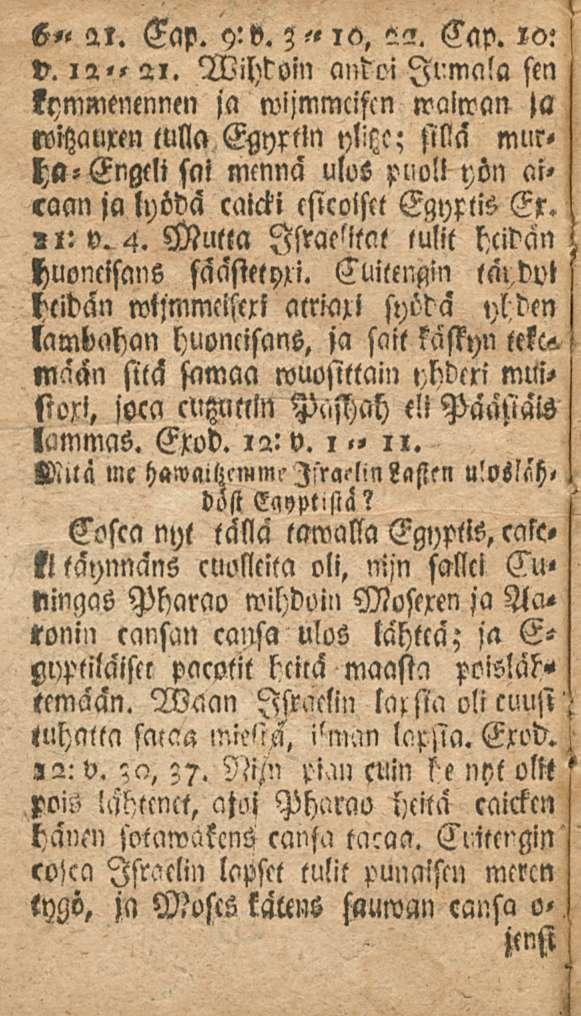 6 ‒ 21. Cap. 9: v. 3 ‒ 10, 22. Cap. 10:
v. 12 ‒ 21. Wihdoin andoi Jumala sen
kymmenennen ja wijmmeisen waiwan ja
witzauxen tulla Egyptin ylitze; sillä mur-
ha-Engeli sai mennä ulos puoli yön ai-
caan ja lyödä caicki esicoiset Egyptis Ex.
11: v. 4. Mutta Israelitat tulit heidän
huoneisans säästetyxi. Cuitengin täydyi
heidän wijmmeisexi atriaxi syödä yhden
lambahan huoneisans, ja sait käskyn teke-
mään sitä samaa wuosittain yhdexi mui-
stoxi, joca cutzuttin Pashah eli Pääsiäis
lammas. Exod. 12: v. 1 ‒ 11.
Mitä me hawaitzemme Israelin Lasten ulosläh-
döst Egyptistä?
Cosca nyt tällä tawalla Egyptis, caic-
ki täynnäns cuolleita oli, nijn sallei Cu-
ningas Pharao wihdoin Mosexen ja Aa-
ronin cansan cansa ulos lähteä; ja E-
gyptiläiset pacotit heitä maasta poisläh-
temään. Waan Israelin lapsia oli cuusi
tuhatta sataa miestä, ilman lapsia. Exod.
12: v. 30, 37. Nijn pian cuin he nyt olit
pois lähtenet, ajoi Pharao heitä caicken
hänen sotawäkens cansa tacaa. Cuitengin
cosca Israelin lapset tulit punaisen meren
tygö, ja Moses kätens sauwan cansa o-
jensi